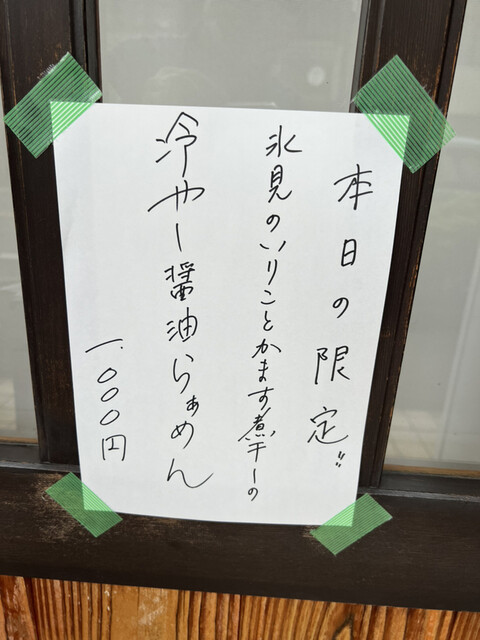 本日の限定〝
氷見のいりことかます煮干しの
冷やし醤油らぁめん
一.〇〇〇円